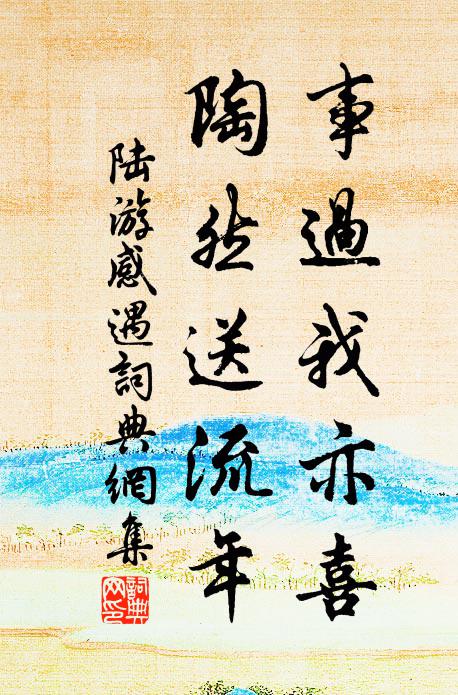 事過我亦喜
陶然送流年
陸游感遇詞典網集
詞典网印